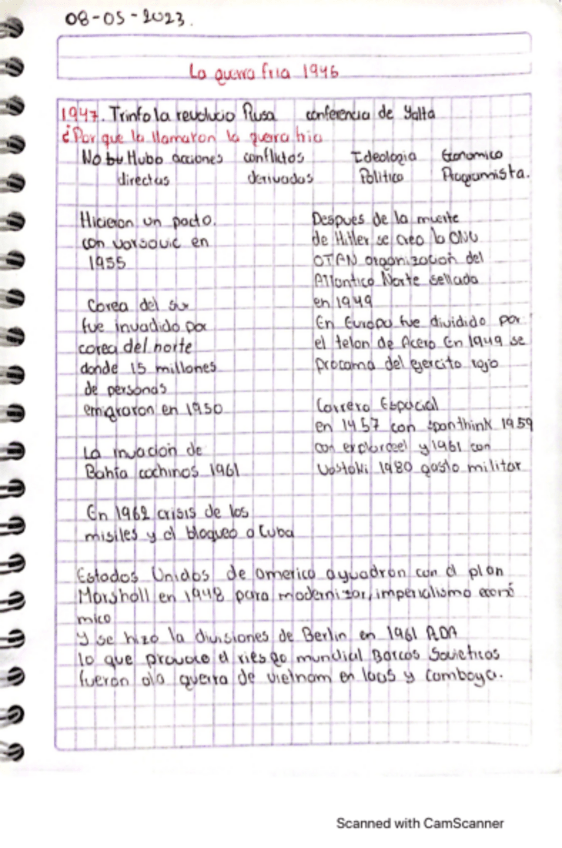 08-05-2023.
La guerra fria 1946
1947. Trinfo la revolucio Rusa conferencia de Yalta
¿Por que la llamaron la guerra fria
No Hubo acciones conflictos Ideologia Economico
directas derivados Politico Programista.
Hicieron un pacto.
con varsovic en
1955
Corea del sur
fue invadido por
corea del norte
donde 15 millones
de personas
emigraron en 1950
La invacion de
Bahía cochinos 1961
En 1962 crisis de los
misiles y el bloqueo a Cuba
Despues de la muerte
de Hitler se creo la ONU
OTAN organización del
Atlantico Norte sellada
en 1949
En Europa fue dividido por
el telon de Acero En 1949 se
procama del ejercito rojo
Carrera Espacial
en 1957 con 1959
con explorcel y 1961 con
Vostoki 1980 gasto militar
Estados Unidos de america ayuadron con el plan
Marshall en 1948 para modernizar, imperialismo econó
mico
y se hizo la divisiones de Berlin en 1961 RDA
lo que provoco el riesgo mundial Barcos Sovieticos
fueron ala guerra de vietnam en laos y camboya.
Scanned with CamScanner